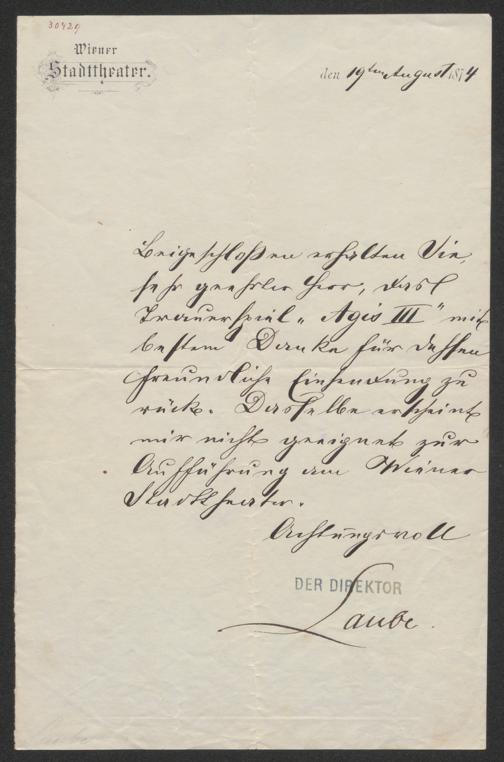 30429
Wiener
Stadttheater.
den 19ten August 1874
Beigeschloßen erhalten Sie,
sehr geehrter Herr, das
Trauerspiel „Agis III" mit
bestem Danke für dessen
freundliche Einsendung zu
rück. Dasselbe erscheint
mir nicht geeignet zur
Aufführung am Wiener
Stadttheater.
Achtungsvoll
DER DIREKTOR
Laube.